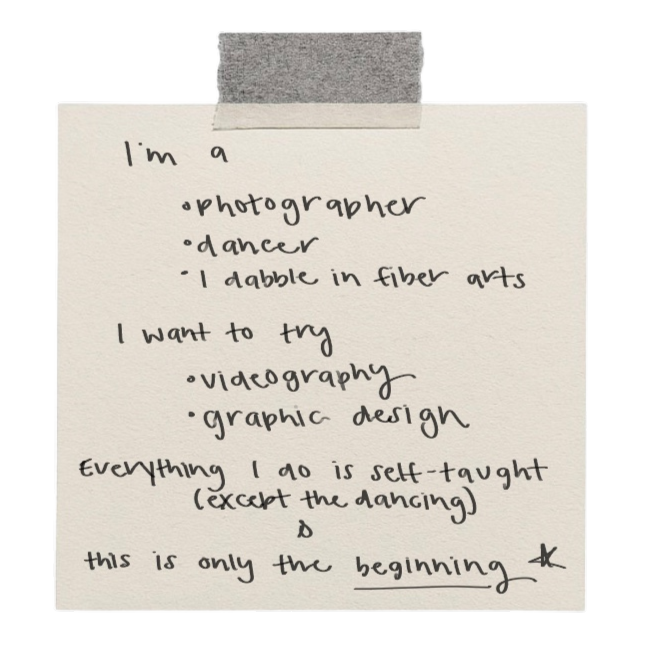 I'm a
• photographer
• dancer
• I dabble in fiber arts
I want to try
• videography
• graphic design
Everything I do is self-taught
(except the dancing)
&
this is only the beginning